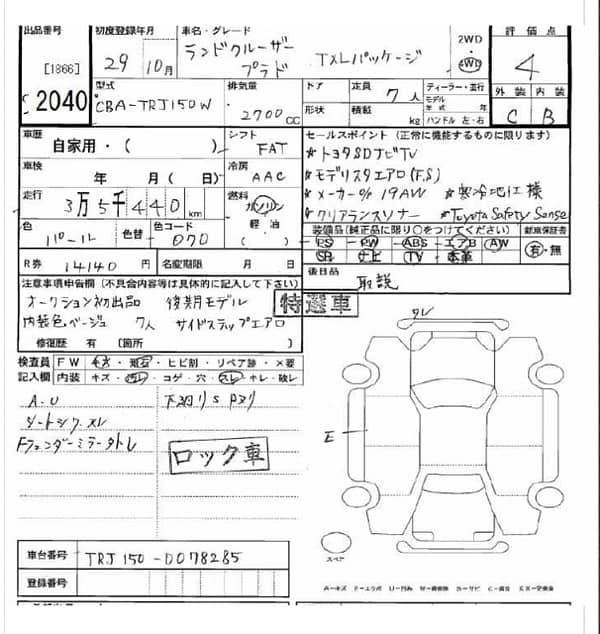 出品番号 初度登録年月 車名・グレード 2WD 評価点
[1866] 29 10月 ランドクルーザープラド TXLパッケージ 4WD 4
2040 型式 排気量 ドア 定員 ディーラー・並行 外装 内装
CBA-TRJ150W 2700CC 7人 モデル 年式 年
形状 積載 kg ハンドル 左・右 C B
車歴 自家用・( ) シフト FAT セールスポイント(正常に機能するものに限ります)
車検 年 月(日) 冷房 AAC ★トヨタSDナビTV
★モデリスタエアロ(F,S)
走行 3万5千440km 燃料 ガソリン 軽油 ( ) ★メーカーo/p 19AW ★寒冷地仕様
★クリアランスソナー ★Toyota Safety Sense
色 パール 色替 色コード 070 装備品(純正品に限り○をつけてください) 新車保証書
PS PW ABS エアB AW 有・無
SR ナビ TV 本革
R券 14140円 名変期限 月 日 後日品 取説
注意事項申告欄(不具合内容等は具体的に記入して下さい) 特選車
オークション初出品 後期モデル
内装色ベージュ 7人 サイドステップエアロ
修復歴 有(箇所 )
検査員記入欄 FW キズ・飛石・ヒビ割・リペア跡・×要
内装 キズ・汚レ・コゲ・穴・スレ・キレ・破レ
A-U
シートシワ・スレ
Fフェンダーミラー
ロック車
タレ
E
スペア
車台番号 TRJ150-D078285
登録番号